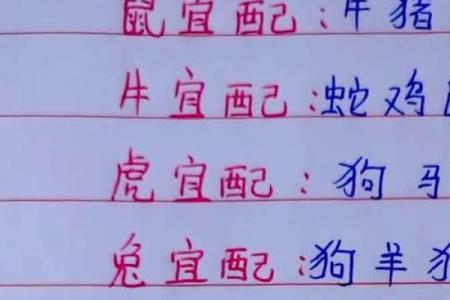 鼠宜配:牛猪
牛宜配:蛇鸡
虎宜配:狗马
兔宜配:狗羊